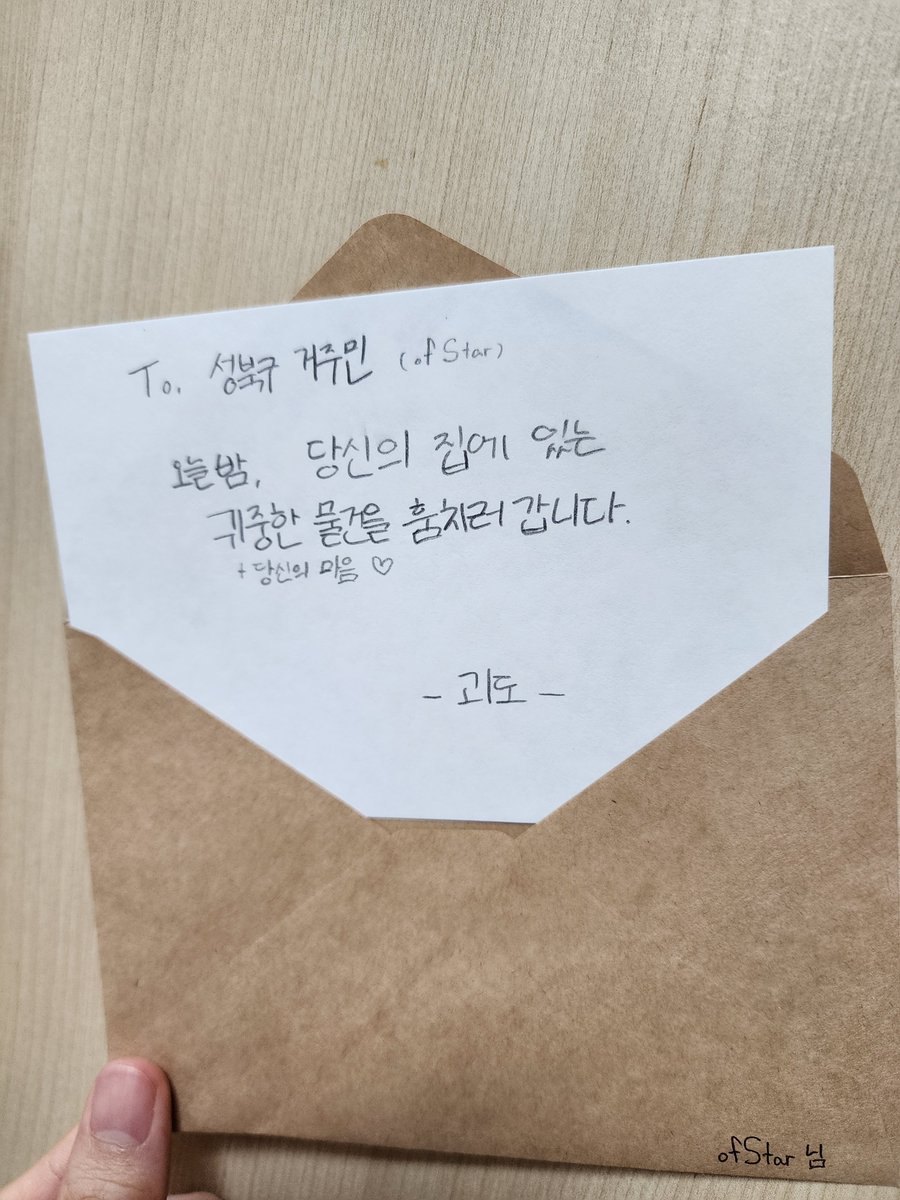 To. 성북구 거주민 (of Star)
오늘밤, 당신의 집에 있는
귀중한 물건을 훔치러 갑니다.
+ 당신의 마음 ♡
- 괴도 -
ofStar 님